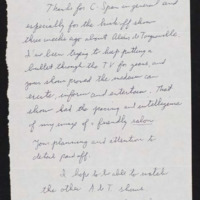 Thanks for C-Span in general and
especially for the kick-off show
three weeks ago about Alexis de Tocqueville
I've been trying to keep putting a
bullet through the TV for years, and
your show proved the medium can
create, inform and entertain. That
show had the pacing and intelligence
of any essay of a friendly salon
Your planning and attention to
detail paid off.
I hope to be able to watch
the other A d T shows